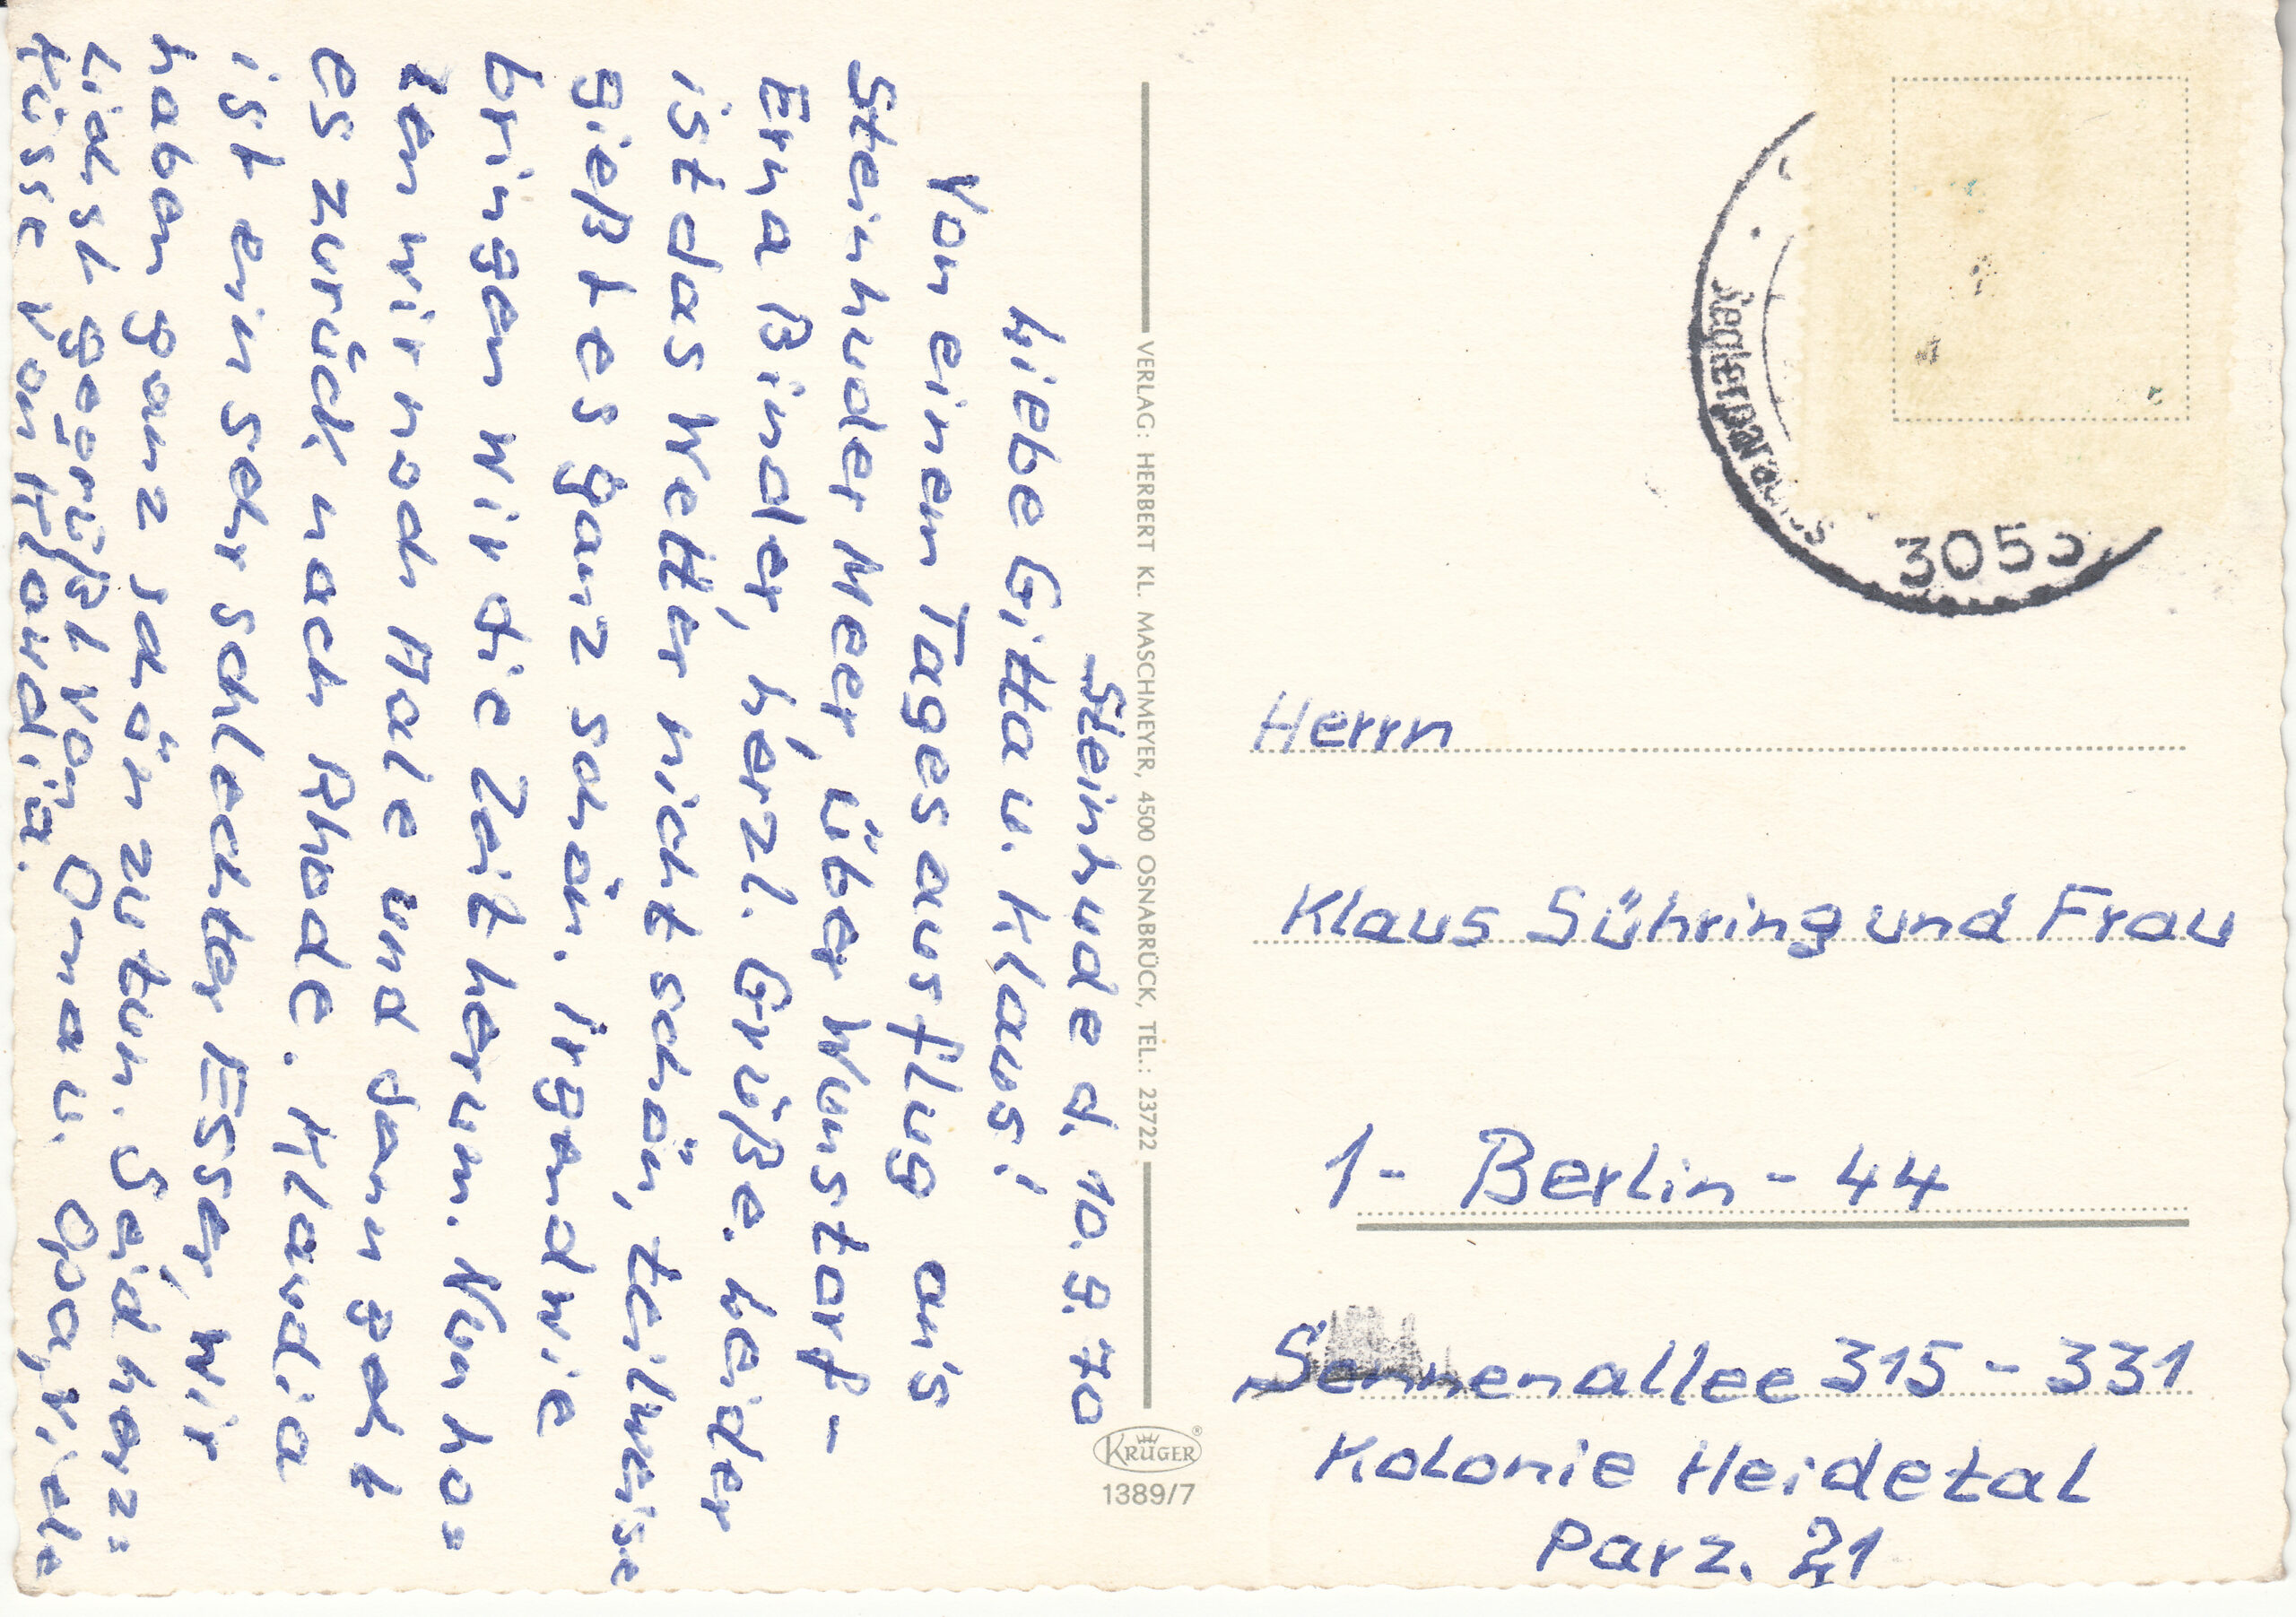 Steinhude d. 10.9.70
Liebe Gitta u. Klaus!
Von einem Tagesausflug an's
Steinhuder Meer, über Wunstorf-
Erna Binder, herzl. Grüße. Leider
ist das Wetter nicht schön, teilweise
gießt es ganz schön. Irgendwie
bringen wir die Zeit herum. Nun ho=
len wir noch Aale und dann geht
es zurück nach Rhode. Klaudia
ist ein sehr schlechter Esser, wir
haben ganz schön zu tun. Seid herz=
lichst gegrüßt von Oma u. Opa, viele
Küsse von Klaudia.
VERLAG: HERBERT KL. MASCHMEYER, 4500 OSNABRÜCK, TEL.: 23722
KRÜGER®
1389/7
Seglerparadies
3055
Herrn
Klaus Sühring und Frau
1- Berlin - 44
Sonnenallee 315 - 331
Kolonie Heidetal
Parz. 21